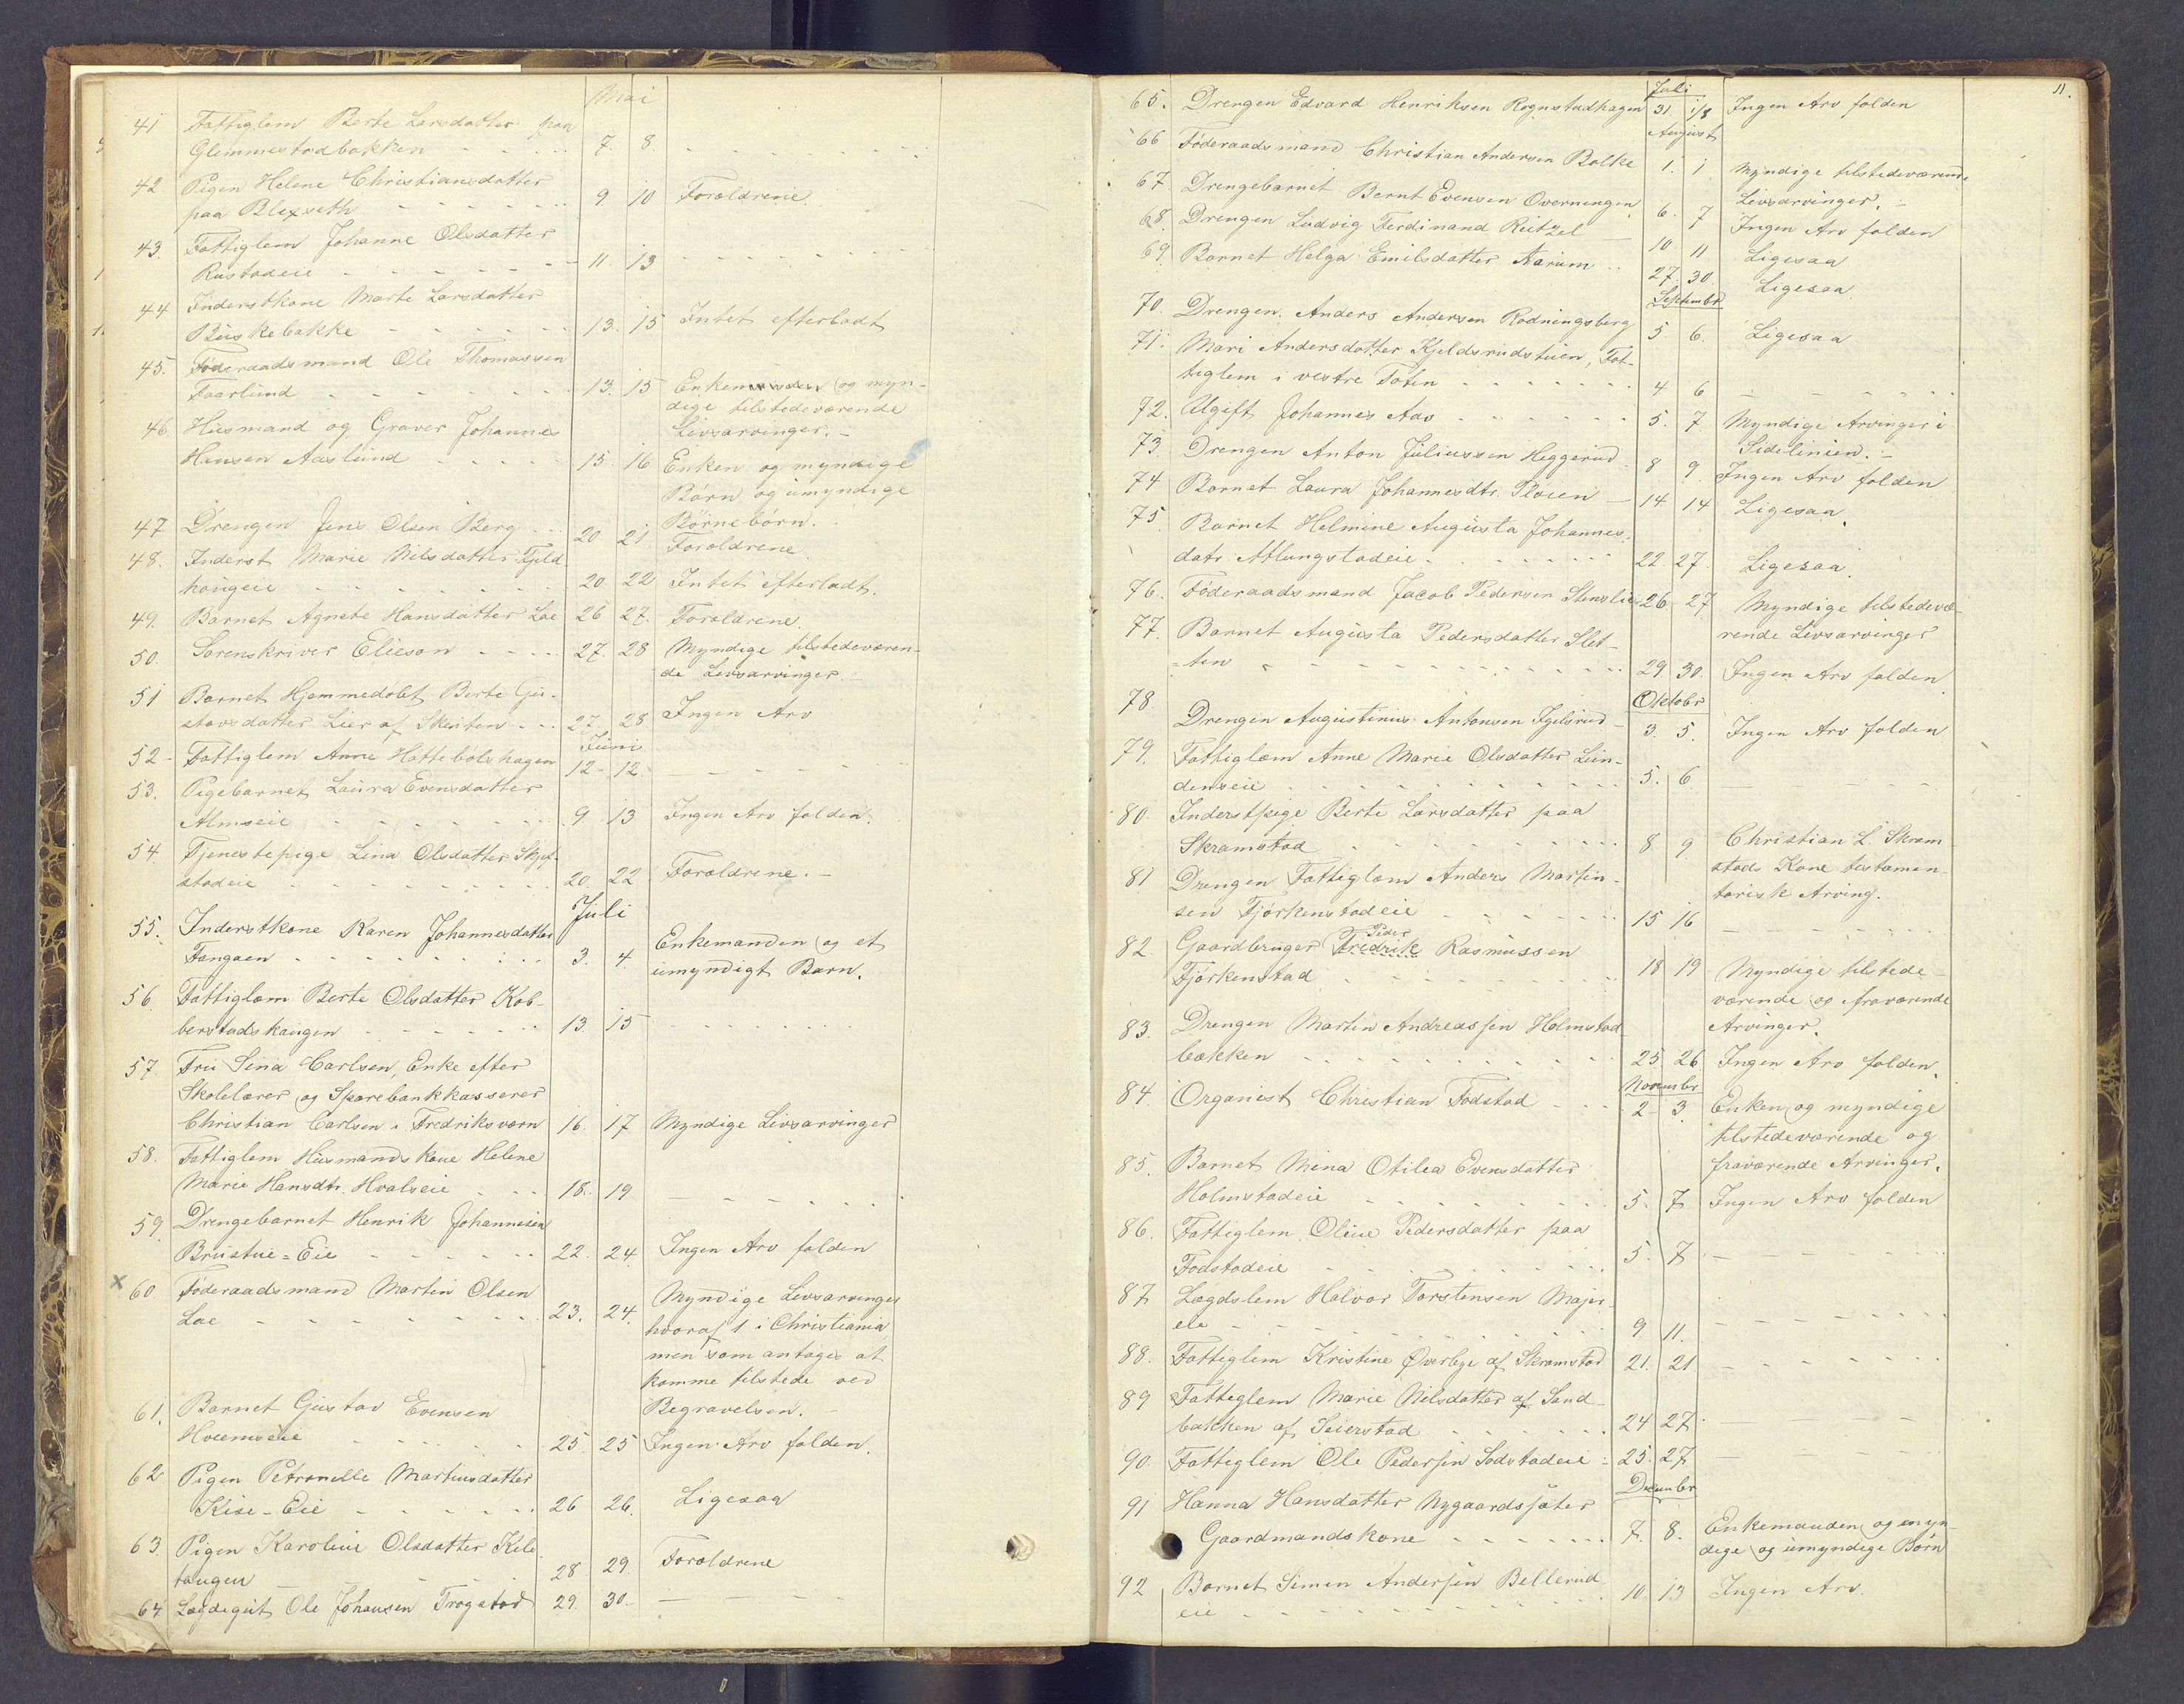 Mai
41 Fattiglem Berte Larsdatter paa
Glemmestadbakken - - - - 7. 8. - - - -
42 Pigen Helene Christiansdatter
paa Blexseth - - - - - 9. 10 Forældrene.
43. Fattiglem Johanne Olsdatter
Rustadeie - - - - - 11. 13 - - - -
44 Inderstkone Marte Larsdatter
Buskebakke - - - - - 13. 15 Intet efterladt
45. Føderaadsmand Ole Thomassen
Faarlund - - - - - 13. 15 Enken og myn-
dige tilstedeværende
Livsarvinger. -
46 Husmand og Graver Johannes
Hansen Aaslund - - - - 15. 16 Enken og myndige
Børn og umyndige
Børnebørn.
47 Drengen Jens Olsen Berg - - 20. 21 Forældrene
48. Inderst Marie Nilsdatter Fjeld-
haugeie - - - - - 20. 22 Intet efterladt.
49. Barnet Agnete Hansdatter Loe 26 27. Forældrene.
50. Sorenskriver Elieson - - - 27. 28 Myndige tilstedeværen-
de Livsarvinger. -
51 Barnet Hjemmedøbt Berte Gu-
stavsdatter Lier af Skreien - - 27. 28 Ingen Arv
Juni
52 - Fattiglem Anne Hattebølshagen 12 - 12. - - - -
53. Pigebarnet Laura Evensdatter
Almseie - - - - - 9. 13 Ingen Arv falden.
54. Tjenestepige Lina Olsdatter Skjel-
stadeie - - - - - 20. 22 Forældrene. -
Juli
55. Inderstkone Karen Johannesdatter
Fangaen - - - - - 3. 4. Enkemanden og et
umyndigt Barn.
56. Fattiglem Berte Olsdatter Kob-
berstadshaugen - - - - 13. 15 - - - -
57. Fru Sina Carlsen, Enke efter
Skolelærer og Sparebankkasserer
Christian Carlsen i Fredriksværn 16. 17 Myndige Livsarvinger
58. Fattiglem Husmandskone Helene
Marie Hansdtr. Hvalseie - - 18. 19 - - - -
59. Drengebarnet Henrik Johannesen
Brustue-Eie - - - - 22. 24. Ingen Arv falden
x 60. Føderaadsmand Martin Olsen
Loe - - - - - 23. 24. Myndige Livsarvinger
hvoraf 1 i Christiania
men som antages at
komme tilstede ved
Begravelsen. -
61. Barnet Gustav Evensen
Hveemseie - - - - 25. 25 Ingen Arv falden.
62 Pigen Petronelle Martinsdatter
Kise-Eie - - - - 26 26. Ligesaa
63. Pigen Karoline Olsdatter
- - - - 28 29. Forældrene
64. Lægdsgut Ole Johansen Trogstad 29. 30 - - - -
11.
Juli
65. Drengen Edvard Henriksen Rognstadhagen 31. 1/8 Ingen Arv falden
August
66 Føderaadsmand Christian Andersen Balke 1. 1 Myndige tilstedeværende
Livsarvinger. -
67. Drengebarnet Bernt Evensen Øverningen 6. 7 Ingen Arv falden
68. Drengen Ludvig Ferdinand Reitzel 10. 11 Ligesaa
69. Barnet Helga Emilsdatter Narum - - 27. 30. Ligesaa
September
70. Drengen Anders Andersen Rødningsberg 5 6. Ligesaa
71. Mari Andersdatter Kjeldsrudstuen, Fat-
tiglem i vestre Toten - - - - 4 6 - - - -
72. Ugift Johannes Aas - - - - 5. 7. Myndige Arvinger i
Sidelinien. -
73. Drengen Anton Juliussen Heggerud 8 9 Ingen Arv falden
74 Barnet Laura Johannesdtr. - 14 14 Ligesaa.
75. Barnet Helmine Augusta Johannes-
datr. Atlungstadeie - - - - 22. 27. Ligesaa.
76. Føderaadsmand Jacob Pedersen Stenslie 26 27 Myndige tilstedevæ-
rende Livsarvinger
77. Barnet Augusta Pedersdatter Slet-
=ten - - - - - 29 30. Ingen Arv falden
Oktober
78. Drengen Augustinus Antonsen Igelsrud - 3. 5. Ingen Arv falden
79. Fattiglem Anne Marie Olsdatter Lun-
denseie - - - - - 5. 6. - - - -
80. Inderstpige Berte Larsdatter paa
Skramstad - - - - - 8 9 Christian L. Skram-
stads Kone testamen-
tarisk Arving.
81 Drengen Fattiglem Anders Martin-
sen Fjørkenstadeie - - - - 15 16 - - - -
82. Gaardbruger Fredrik Peder Rasmussen
Fjørkenstad - - - - 18 19 Myndige tilstede-
værende og fraværende
Arvinger.
83. Drengen Martin Andreassen Holmstad
bækken - - - - - 25 26 Ingen Arv falden.
November
84. Organist Christian Fodstad - - 2 - 3 Enken og myndige
tilstedeværende og
fraværende Arvinger.
85. Barnet Mina Otilea Evensdatter
Holmstadeie - - - - 5. 7. Ingen Arv falden
86. Fattiglem Oline Pedersdatter paa
Fodstadeie - - - - 5. 7. - - - -
87 Lægdslem Halvor Torstensen Majer-
eie - - - - - 9 11. - - - -
88. Fattiglem Kristine Øverbye af Skramstad 21. 21 - - - -
89 Fattiglem Marie Nilsdatter af Sand-
bakken af Seierstad - - - 24 27. - - - -
90. Fattiglem Ole Pedersen Sodstadeie - 25. 27 - - - -
December
91 Hanna Hansdatter Nygaardssæter
Gaardmandskone - - - - 7. 8. Enkemanden og myn-
dige og umyndige Børn
92 Barnet Simen Andersen Bellerud-
eie - - - - - 10. 13 Ingen Arv.